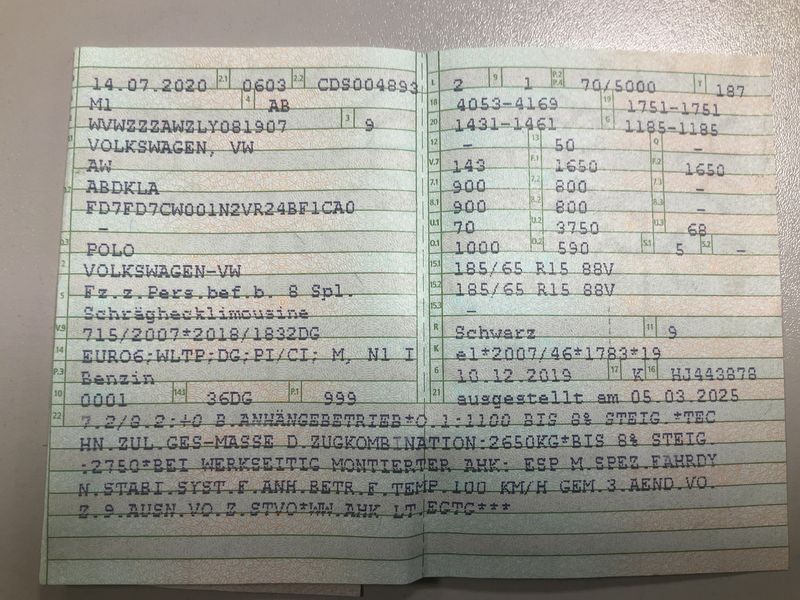 14.07.2020 2.1 0603 2.2 CDS004893
M1 4 AB
WVWZZZAWZLY081907 3 9
VOLKSWAGEN, VW
AW
ABDKLA
FD7FD7CW001N2VR24BF1CA0
-
D.3 POLO
2 VOLKSWAGEN-VW
5 Fz.z.Pers.bef.b. 8 Spl.
Schräghecklimousine
V.9 715/2007*2018/1832DG
14 EURO6;WLTP;DG;PI/CI; M, N1 I
P.3 Benzin
10 0001 14.1 36DG P.1 999
L 2 9 1 P.2 P.4 70/5000 T 187
18 4053-4169 19 1751-1751
20 1431-1461 G 1185-1185
12 - 13 50 Q -
V.7 143 F.1 1650 F.2 1650
7.1 900 7.2 800 7.3 -
8.1 900 8.2 800 8.3 -
U.1 70 U.2 3750 U.3 68
O.1 1000 O.2 590 S.1 5 S.2 -
15.1 185/65 R15 88V
15.2 185/65 R15 88V
15.3 -
R Schwarz 11 9
K e1*2007/46*1783*19
6 10.12.2019 17 K 16 HJ443878
21 ausgestellt am 05.03.2025
22 7.2/8.2:+0 B.ANHÄNGEBETRIEB*O.1:1100 BIS 8% STEIG.*TEC
HN.ZUL.GES-MASSE D.ZUGKOMBINATION:2650KG*BIS 8% STEIG.
:2750*BEI WERKSEITIG MONTIERTER AHK: ESP M.SPEZ.FAHRDY
N.STABI.SYST.F.ANH.BETR.F.TEMP.100 KM/H GEM.3.AEND.VO.
Z.9.AUSN.VO.Z.STVO*WW.AHK LT.EGTG***